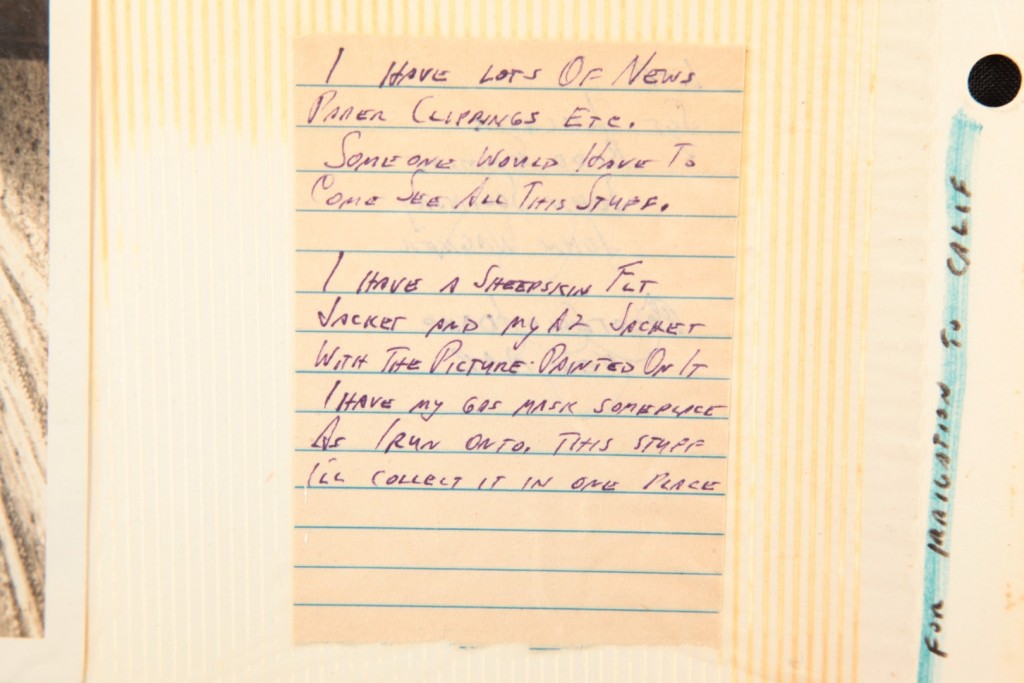 I HAVE LOTS OF NEWS
PAPER CLIPPINGS ETC.
SOMEONE WOULD HAVE TO
COME SEE ALL THIS STUFF.
I HAVE A SHEEPSKIN FLT
JACKET AND MY A2 JACKET
WITH THE PICTURE PAINTED ON IT
I HAVE MY GAS MASK SOMEPLACE
AS I RUN ONTO. THIS STUFF
I'LL COLLECT IT IN ONE PLACE
FOR IRRIGATION TO CALIF